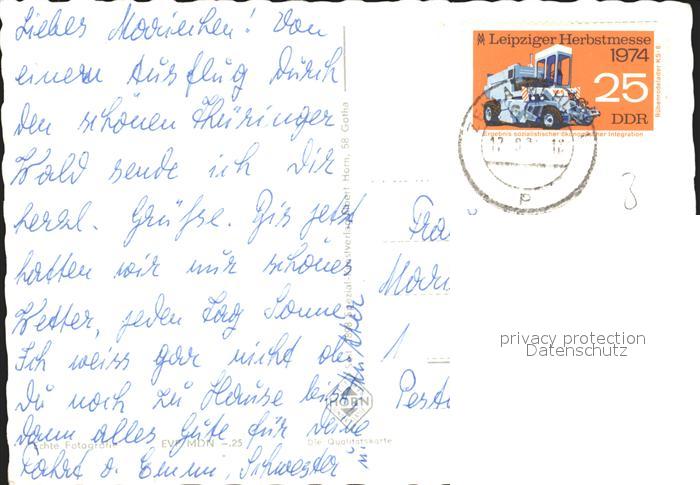 Liebes Mariechen! Von
einem Ausflug durch
den schönen Thüringer
Wald sende ich Dir
herzl. Grüsse. Bis jetzt
hatten wir nur schönes
Wetter, jeden Tag Sonne
Ich weiss gar nicht ob
Du noch zu Hause bist
dann alles Gute für deine
Fahrt v. Emmi, Schwester
u. Mutter
Leipziger Herbstmesse
1974
25
DDR
Ergebnis sozialistischer ökonomischer Integration
Rübenrodelader KS-6
3
Horn, 58 Gotha
HORN
Echte Fotografie
EVP MDN -.25
Die Qualitätskarte
privacy protection
Datenschutz